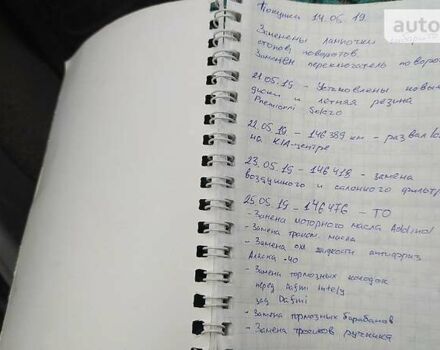 auto
Покупки 14.05.19
Заменены лампочки
стопов, поворотов.
Заменён переключатель поворо
21.05.19 - Установлены новы
диски и летняя резина
Premiorri Solazo
22.05.19 - 146389 км - развал
на KIA-центре
23.05.19 - 146419 - замена
воздушного и салонного фильт
25.05.19 - 146476 - ТО
- Замена моторного масла Addinol
- Замена трансм. масла
- Замена ох жидкости антифриз
Аляска -40
- Замена тормозных колодок
перед Dafmi Intelly
зад Dafmi
- Замена тормозных барабанов
- Замена тросиков ручника